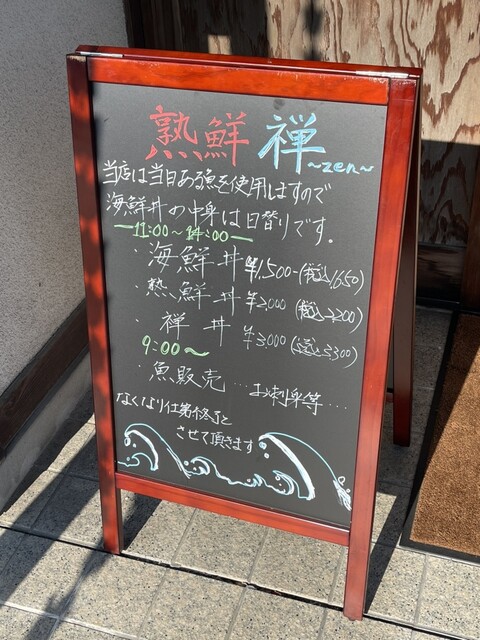 熟鮮 禅
~zen~
当店は当日ある魚を使用しますので
海鮮丼の中身は日替りです。
ー11:00~14:00ー
・海鮮丼 ¥1,500-(税込1650)
・熟鮮丼 ¥2,000 (税込2200)
・禅丼 ¥3,000 (税込3300)
9:00~
・魚販売…お刺身等…
なくなり仕第終了と
させて頂きます